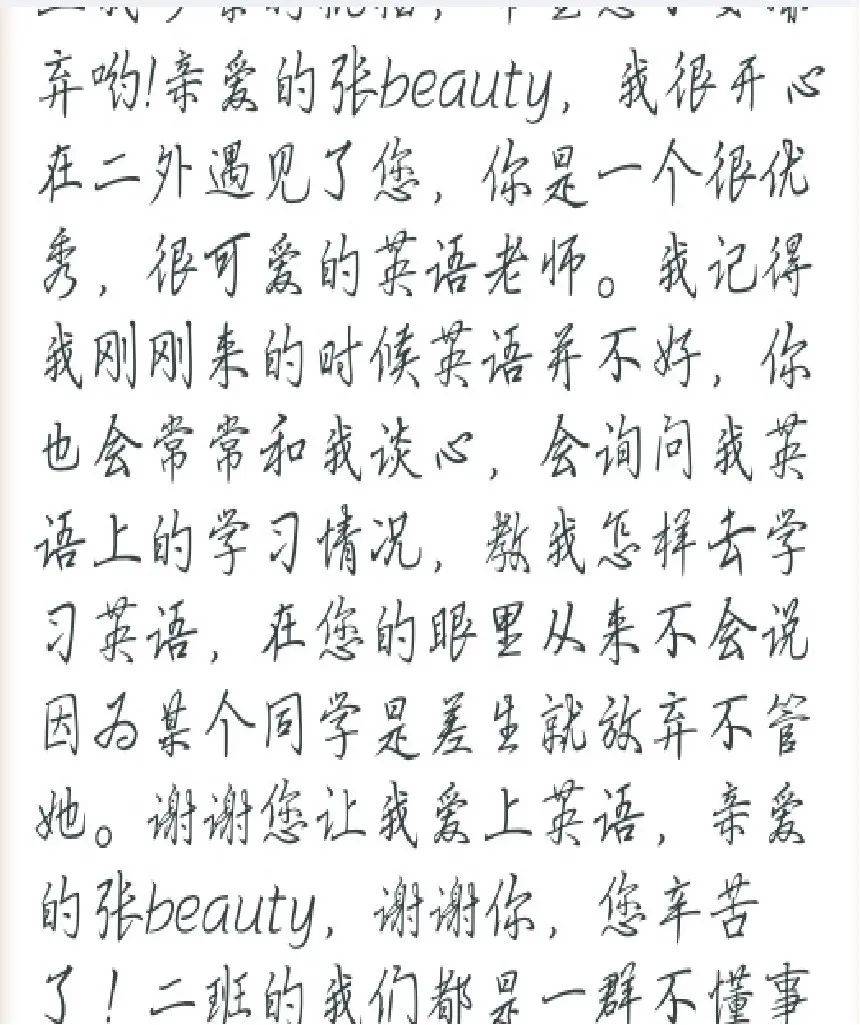 弃哟!亲爱的张beauty，我很开心
在二外遇见了您，你是一个很优
秀，很可爱的英语老师。我记得
我刚刚来的时候英语并不好，你
也会常常和我谈心，会询问我英
语上的学习情况，教我怎样去学
习英语，在您的眼里从来不会说
因为某个同学是差生就放弃不管
她。谢谢您让我爱上英语，亲爱
的张beauty，谢谢你，您辛苦
了！二班的我们都是一群不懂事